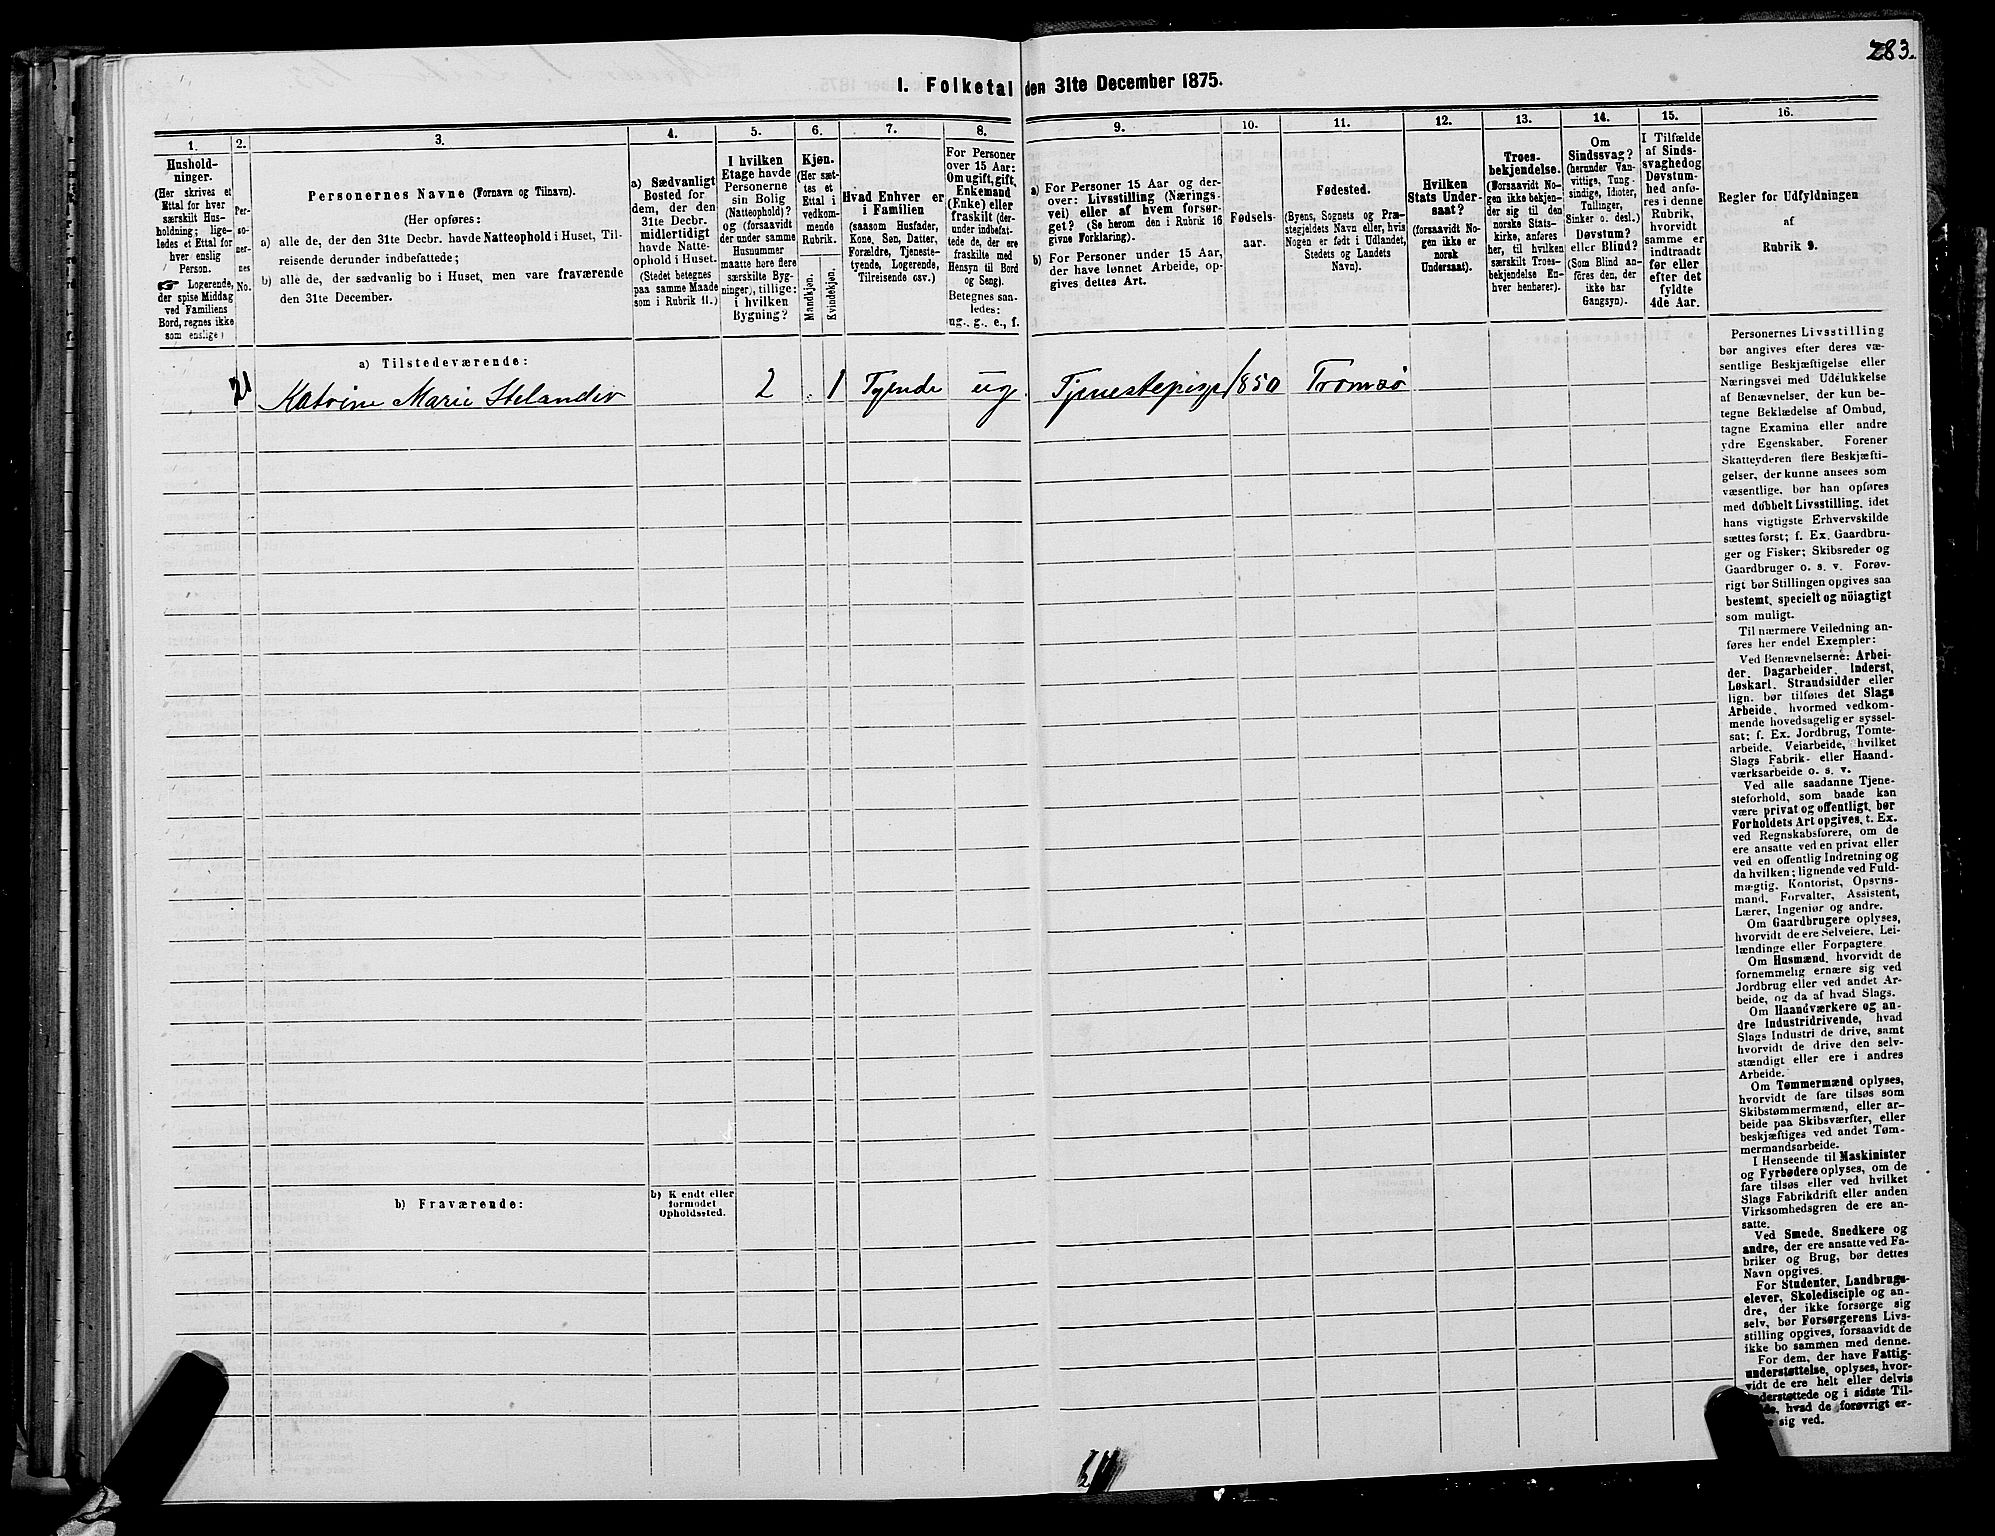 283.
I. Folketal den 31te December 1875.
1.
Hushold-
ninger.
(Her skrives et
Ettal for hver
særskilt Hus-
holdning; lige-
ledes et Ettal for
hver enslig
Person.
☛ Logerende,
der spise Middag
ved Familiens
Bord, regnes ikke
som enslige)
2.
Per-
so-
ner-
nes
No.
3.
Personernes Navne (Fornavn og Tilnavn).
(Her opføres:
a) alle de, der den 31te Decbr. havde Natteophold i Huset, Til-
reisende derunder indbefattede;
b) alle de, der sædvanlig bo i Huset, men vare fraværende
den 31te December.
4.
a) Sædvanligt
Bosted for
dem, der den
31te Decbr.
midlertidigt
havde Natte-
ophold i Huset.
(Stedet betegnes
paa samme Maade
som i Rubrik 11.)
5.
I hvilken
Etage havde
Personerne
sin Bolig
(Natteophold)?
og (forsaavidt
der under samme
Husnummer
maatte høre flere
særskilte Byg-
ninger), tillige:
i hvilken
Bygning?
6.
Kjøn.
(Her sæt-
tes et
Ettal i
vedkom-
mende
Rubrik.
Mandkjøn.
Kvindekjøn.
7.
Hvad Enhver er
i Familien
(saasom Husfader,
Kone, Søn, Datter,
Forældre, Tjeneste-
tyende, Logerende,
Tilreisende osv.)
8.
For Personer
over 15 Aar:
Om ugift, gift,
Enkemand
(Enke) eller
fraskilt (der-
under indbefat-
tede de, der ere
fraskilte med
Hensyn til Bord
og Seng).
Betegnes saa-
ledes:
ug., g., e., f.
9.
a) For Personer 15 Aar og der-
over: Livsstilling (Nærings-
vei) eller af hvem forsør-
get? (Se herom den i Rubrik 16
givne Forklaring).
b) For Personer under 15 Aar,
der have lønnet Arbeide, op-
gives dettes Art.
10.
Fødsels-
aar.
11.
Fødested.
(Byens, Sognets og Præ-
stegjeldets Navn eller, hvis
Nogen er født i Udlandet,
Stedets og Landets
Navn).
12.
Hvilken
Stats Under-
saat?
(forsaavidt No-
gen ikke er
norsk
Undersaat).
13.
Troes-
bekjendelse.
(Forsaavidt No-
gen ikke bekjen-
der sig til den
norske Stats-
kirke, anføres
her, til hvilken
særskilt Troes-
bekjendelse En-
hver henhører).
14.
Om
Sindssvag?
(herunder Van-
vittige, Tung-
sindige, Idioter,
Tullinger,
Sinker o. desl.)
Døvstum?
eller Blind?
(Som Blind an-
føres den, der
ikke har
Gangsyn).
15.
I Tilfælde
af Sinds-
svaghed og
Døvstum-
hed anfø-
res i denne
Rubrik,
hvorvidt
samme er
indtraadt
før eller
efter det
fyldte
4de Aar.
16.
Regler for Udfyldningen
af
Rubrik 9.
a) Tilstedeværende:
21 Katrine Marie Stelander 2 1 Tyende ug. Tjenestepige 1850 Tromsø
b) Fraværende:
b) Kjendt eller
formodet
Opholdssted.
Personernes Livsstilling
bør angives efter deres væ-
sentlige Beskjæftigelse eller
Næringsvei med Udelukkelse
af Benævnelser, der kun be-
tegne Beklædelse af Ombud,
tagne Examina eller andre
ydre Egenskaber. Forener
Skatteyderen flere Beskjæfti-
gelser, der kunne ansees som
væsentlige, bør han opføres
med dobbelt Livsstilling, idet
hans vigtigste Erhvervskilde
sættes først; f. Ex. Gaardbru-
ger og Fisker; Skibsreder og
Gaardbruger o. s. v. Forøv-
rigt bør Stillingen opgives saa
bestemt, specielt og nøiagtigt
som muligt.
Til nærmere Veiledning an-
føres her endel Exempler:
Ved Benævnelserne: Arbei-
der, Dagarbeider, Inderst,
Løskarl, Strandsidder eller
lign. bør tilføies det Slags
Arbeide, hvormed vedkom-
mende hovedsagelig er syssel-
sat; f. Ex. Jordbrug, Tomte-
arbeide, Veiarbeide, hvilket
Slags Fabrik- eller Haand-
værksarbeide o. s. v.
Ved alle saadanne Tjene-
steforhold, som baade kan
være privat og offentligt, bør
Forholdets Art opgives, t. Ex.
ved Regnskabsførere, om de
ere ansatte ved en privat eller
ved en offentlig Indretning og
da hvilken; lignende ved Fuld-
mægtig, Kontorist, Opsyns-
mand, Forvalter, Assistent,
Lærer, Ingeniør og andre.
Om Gaardbrugere oplyses,
hvorvidt de ere Selveiere, Lei-
lændinge eller Forpagtere.
Om Husmænd, hvorvidt de
fornemmelig ernære sig ved
Jordbrug eller ved andet Ar-
beide, og da af hvad Slags.
Om Haandværkere og an-
dre Industridrivende, hvad
Slags Industri de drive, samt
hvorvidt de drive den selv-
stændigt eller ere i andres
Arbeide.
Om Tømmermænd oplyses,
hvorvidt de fare tilsøs som
Skibstømmermænd, eller ar-
beide paa Skibsværfter, eller
beskjæftiges ved andet Tøm-
mermandsarbeide.
I Henseende til Maskinister
og Fyrbødere oplyses, om de
fare tilsøs eller ved hvilket
Slags Fabrikdrift eller anden
Virksomhedsgren de ere an-
satte.
Ved Smede, Snedkere og
andre, der ere ansatte ved Fa-
briker og Brug, bør dettes
Navn opgives.
For Studenter, Landbrugs-
elever, Skoledisciple og an-
dre, der ikke forsørge sig
selv, bør Forsørgerens Livs-
stilling opgives, forsaavidt de
ikke bo sammen med denne.
For dem, der have Fattig-
understøttelse, oplyses, hvor-
vidt de ere helt eller delvis
understøttede og i sidste Til-
hvad de forøvrigt er-
sig ved.